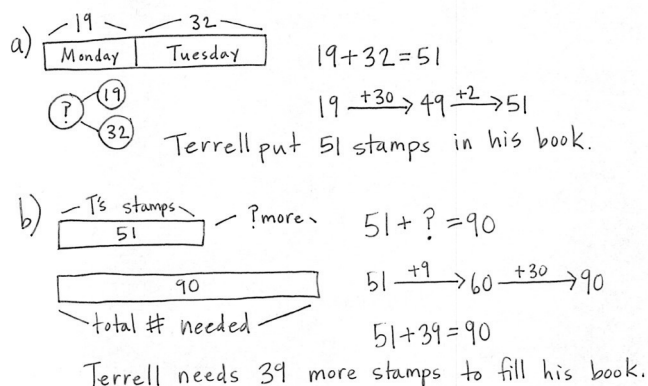 a) 19 32
Monday Tuesday
? 19 32
19+32=51
19 +30 49 +2 51
Terrell put 51 stamps in his book.
b) T's stamps ? more
51
90
total # needed
51 + ? = 90
51 +9 60 +30 90
51+39=90
Terrell needs 39 more stamps to fill his book.